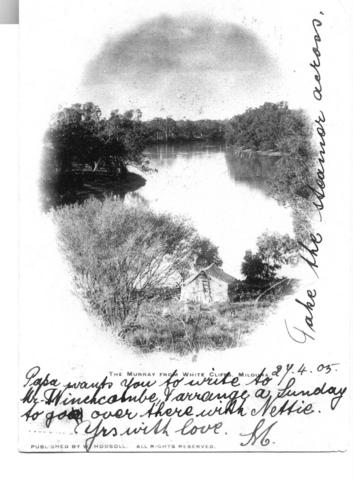 Take the steamer across,
THE MURRAY FROM WHITE CLIFFS, MILDURA
27.4.05.
Papa wants you to write to
Mr Winchcombe, & arrange a Sunday
to go over there with Nettie.
Yrs with love. M.
PUBLISHED BY W. HODSOLL. ALL RIGHTS RESERVED.